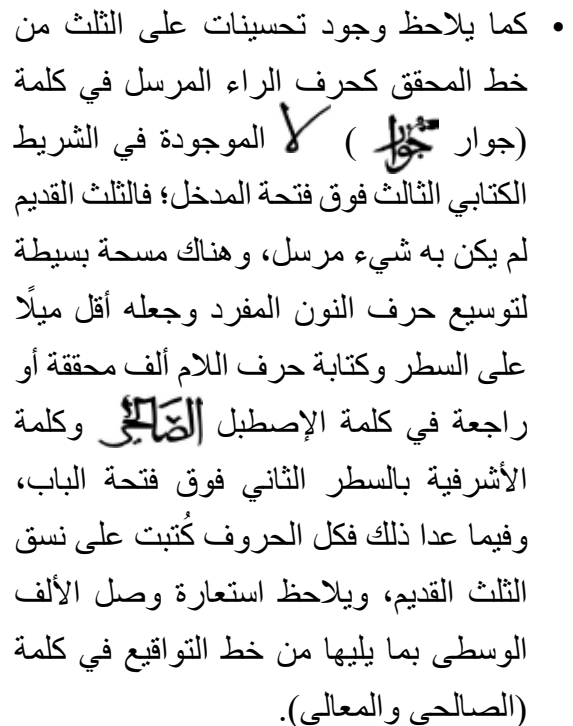 • كما يلاحظ وجود تحسينات على الثلث من
خط المحقق كحرف الراء المرسل في كلمة
(جوار جوار ) لا الموجودة في الشريط
الكتابي الثالث فوق فتحة المدخل؛ فالثلث القديم
لم يكن به شيء مرسل، وهناك مسحة بسيطة
لتوسيع حرف النون المفرد وجعله أقل ميلًا
على السطر وكتابة حرف اللام ألف محققة أو
راجعة في كلمة الإصطبل الصَالحي وكلمة
الأشرفية بالسطر الثاني فوق فتحة الباب،
وفيما عدا ذلك فكل الحروف كُتبت على نسق
الثلث القديم، ويلاحظ استعارة وصل الألف
الوسطى بما يليها من خط التواقيع في كلمة
(الصالحي والمعالي).